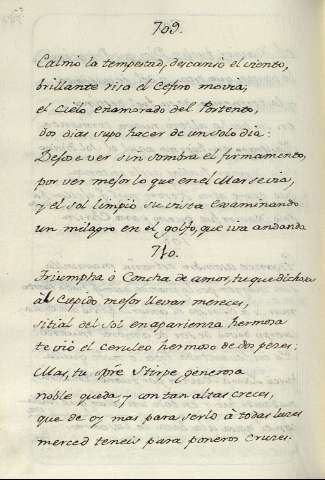 709.
Calmó la tempestad, descansó el viento,
brillante risa el Cefiro movia,
el Cielo enamorado del Portento,
dos dias supo hacer de un solo dia:
Defose ver sin sombra el firmamento,
por ver mejor lo que en el Mar se via,
y el sol limpió su vista Examinando
un milagro en el golfo, que iva andando
710.
Triumpha ò Concha de amor, tu que dichosa
àl Cupido mejor llevar mereces,
sitial del Sol en aparienza hermosa
te vió el ceruleo hermoso de dos pezes:
Mas, tu Stirpe generosa
noble queda, y con tan altas creces,
que de oy mas para serlo à todas luzes
merced teneis para poneros cruzes.